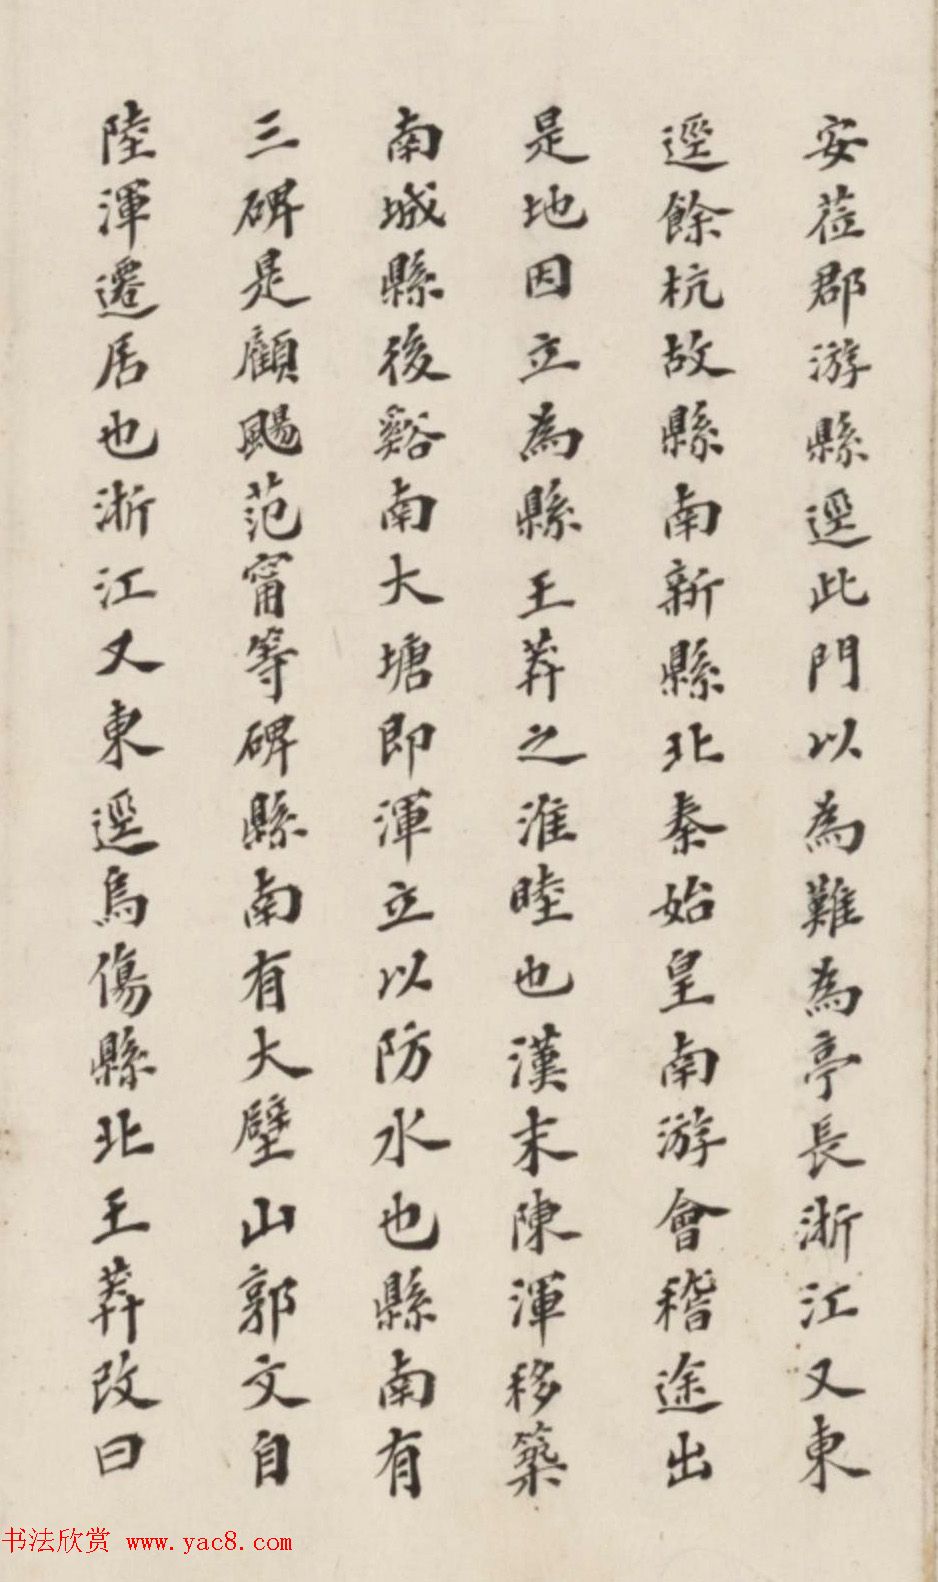 安莅郡游縣逕此門以為難為亭長浙江又東
逕餘杭故縣南新縣北秦始皇南游會稽途出
是地因立為縣王莽之淮睦也漢末陳渾移築
南城縣後谿南大塘即渾立以防水也縣南有
三碑是顧颺范甯等碑縣南有大壁山郭文自
陸渾遷居也浙江又東逕烏傷縣北王莽改曰
书法欣赏 www.yac8.com